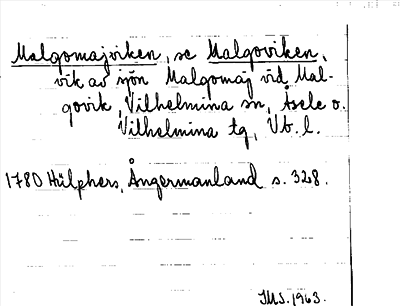 Malgomajviken, se Malgoviken,
vik av sjön Malgomaj vid Mal-
govik, Vilhelmina sn, Åsele o.
Vilhelmina tg, Vb. l.
1780 Hülphers, Ångermanland s. 328.
IMS. 1963.